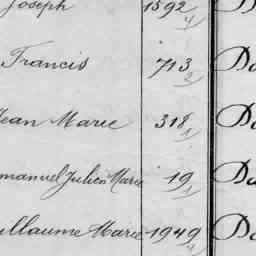 Joseph 1592 4
Francis 713 2
Jean Marie 318 1
manuel Julien Marie 19 1
uillaume Marie 1949 4